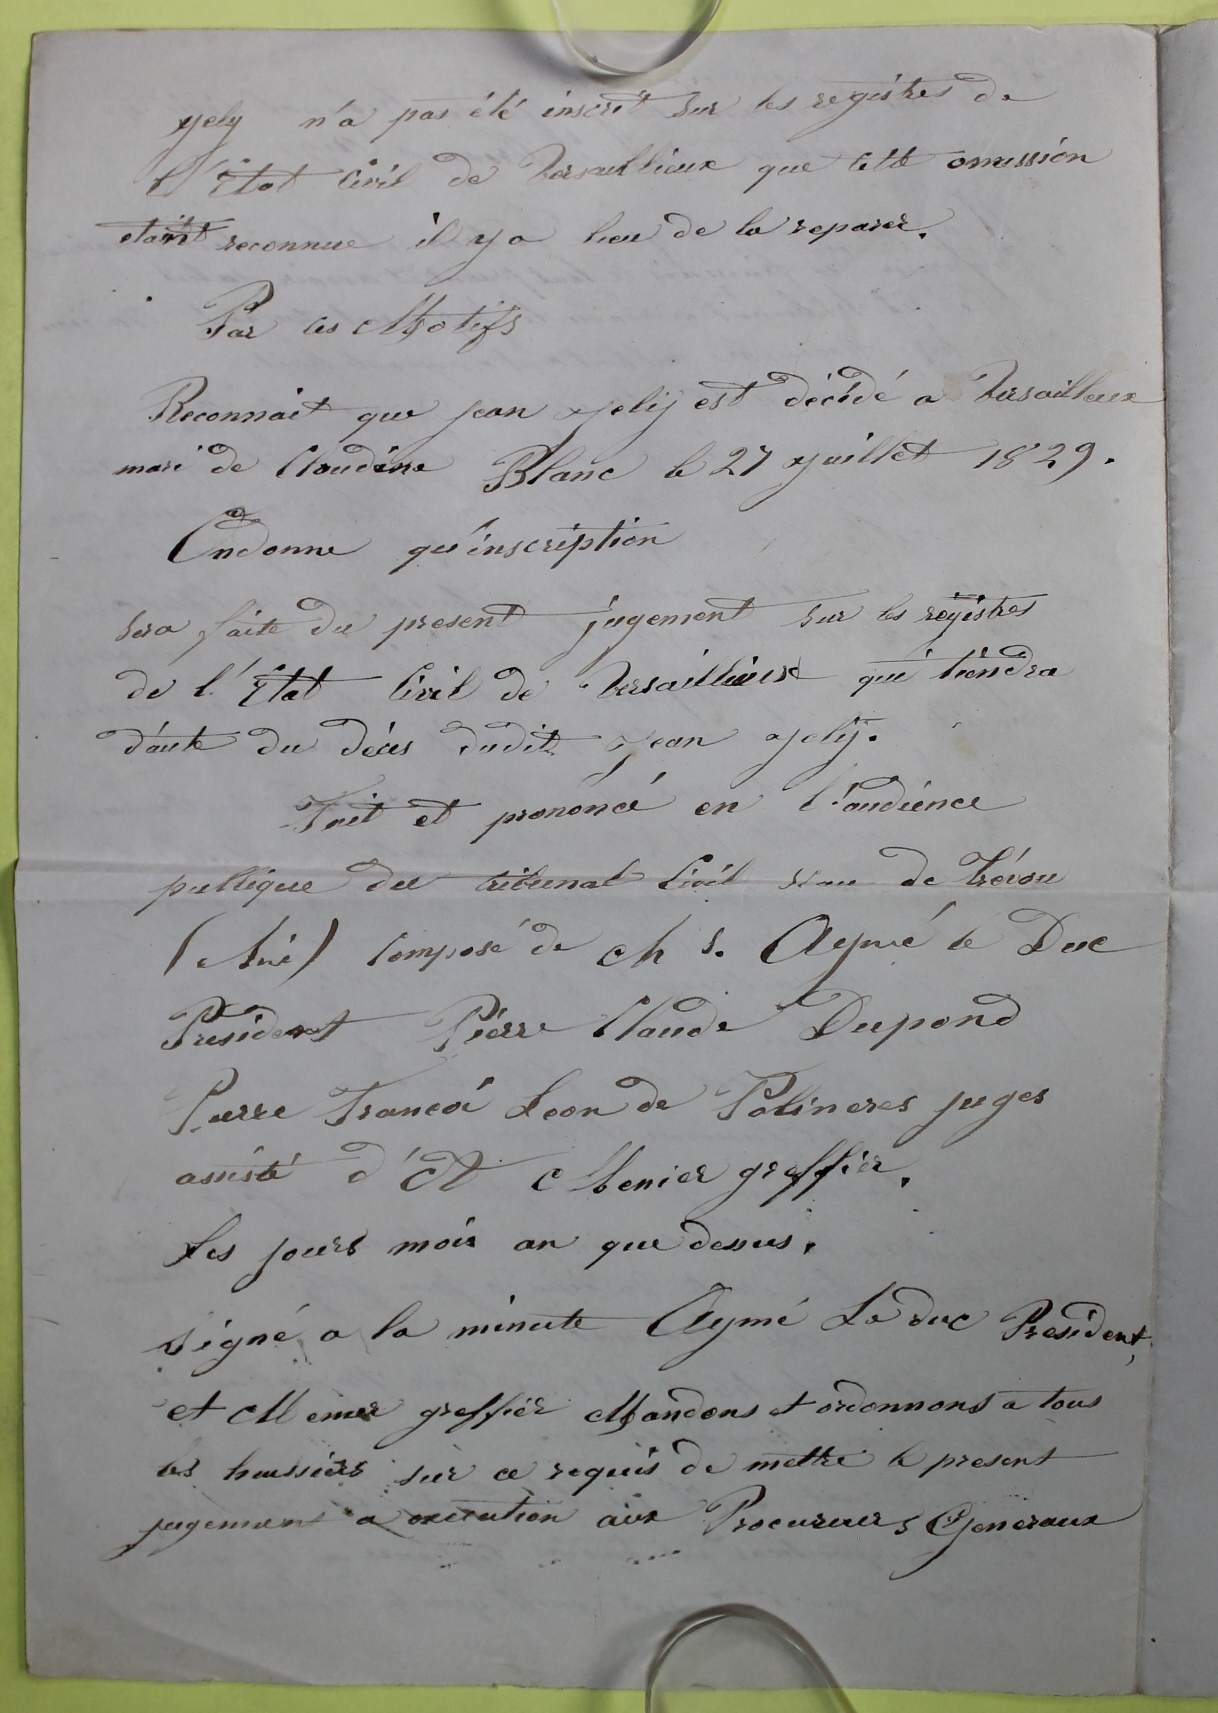 Jely n'a pas été inscrit sur les registres de
l'Etat Civil de Versaillieux que cette omission
etant reconnue il y a lieu de la reparer.
Par ces Motifs
Reconnait que Jean Jelij est décédé a Versailleux
mari de Claudine Blanc le 27 Juillet 1829.
Ordonne qu'inscription
sera faite du present jugement sur les registres
de l'Etat Civil de Versaillieux qui tiendra
d'acte du décès dudit Jean Jelij.
Fait et prononcé en l'audience
publique du tribunal Civil de Trévou
(Ain) Composé de Ch s. Aymé le Duc
President Pierre Claude Dupond
Pierre Francoi Leon de Polineres juges
assisté d'Et Menier greffier.
Les jours mois an que dessus.
Signé a la minute Aymé Le duc President,
et Menier greffier Mandons et ordonnons a tous
les huissiers sur ce requis de mettre le present
jugement a execution aux Procureurs Generaux